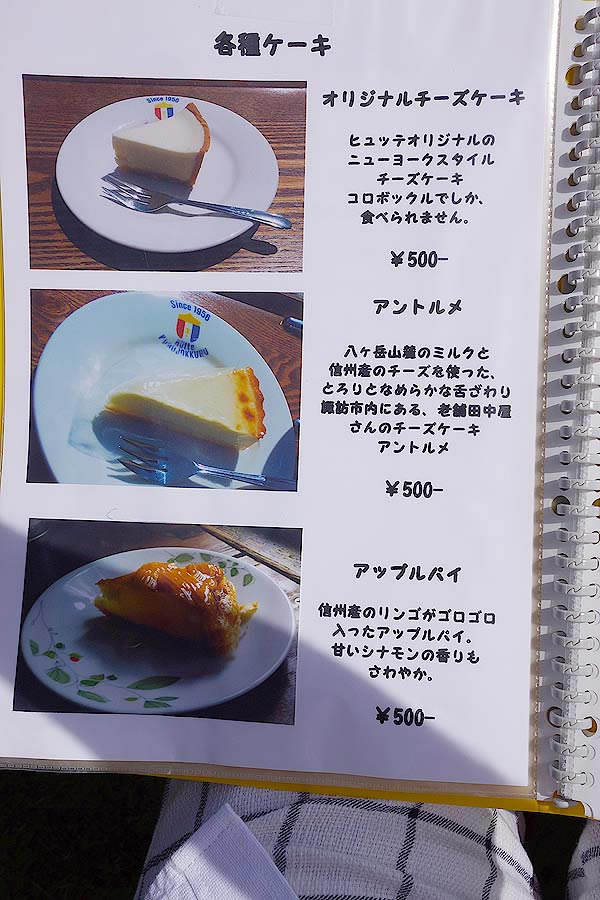 各種ケーキ
Since 1956
オリジナルチーズケーキ
ヒュッテオリジナルの
ニューヨークスタイル
チーズケーキ
コロボックルでしか、
食べられません。
¥500-
Since 1956
アントルメ
八ヶ岳山麓のミルクと
信州産のチーズを使った、
とろりとなめらかな舌ざわり
諏訪市内にある、老舗田中屋
さんのチーズケーキ
アントルメ
¥500-
アップルパイ
信州産のリンゴがゴロゴロ
入ったアップルパイ。
甘いシナモンの香りも
さわやか。
¥500-